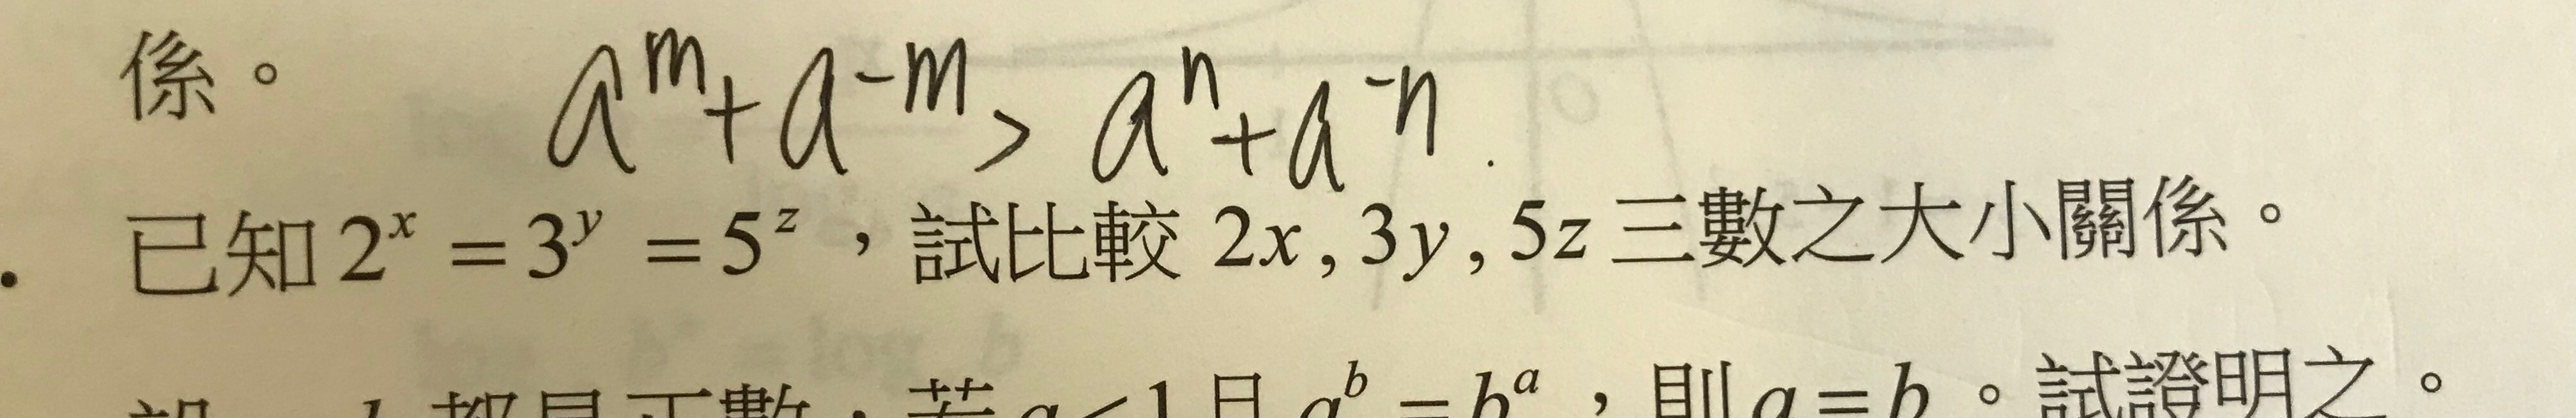 係。
a^m + a^{-m} > a^n + a^{-n}.
. 已知 2^x = 3^y = 5^z ，試比較 2x , 3y , 5z 三數之大小關係。
設 b 都是正數，若 a < 1 且 a^b = b^a ，則 a = b 。試證明之。